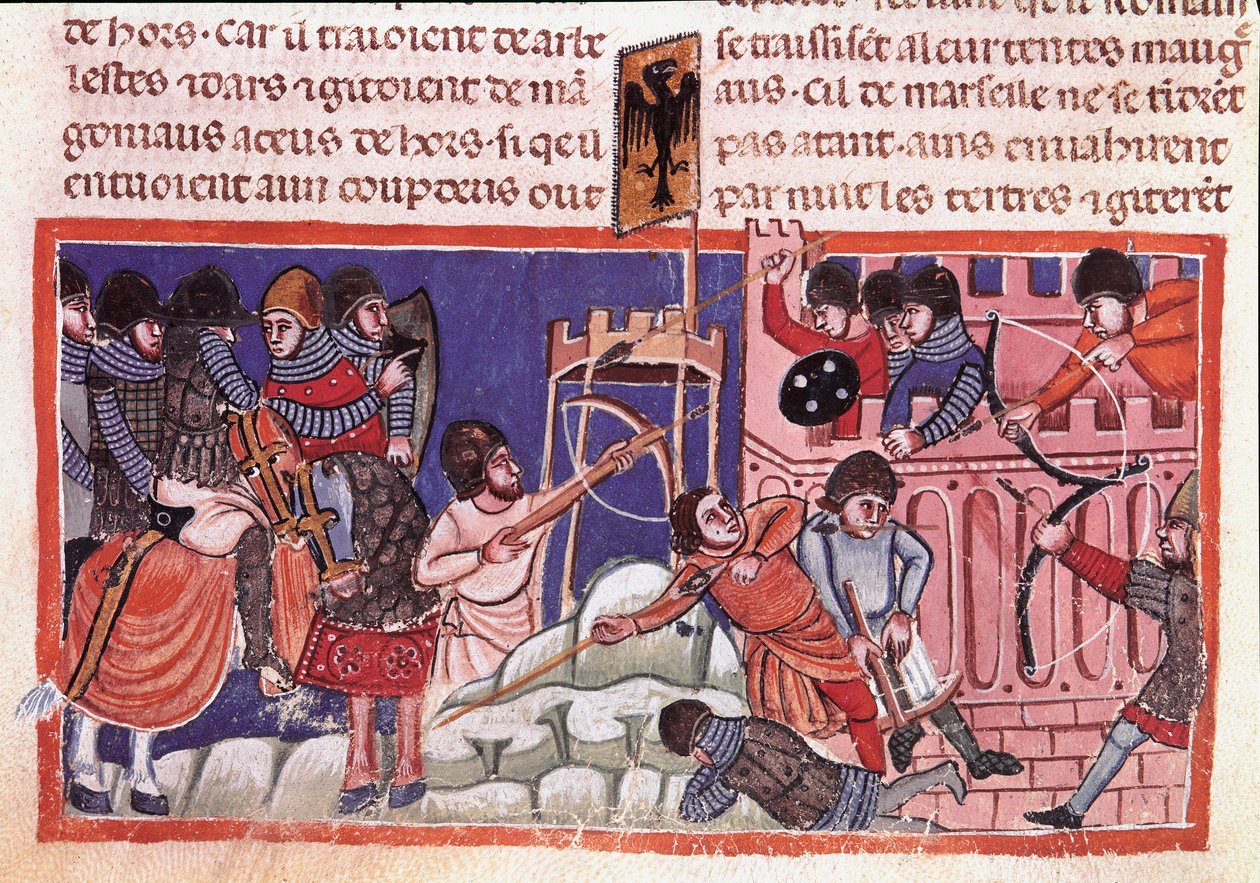 de hors · Car il traioient de arbe
lestes ⁊ dars ⁊ gitoient de mā
goniaus a ceus de hors · si qe il
entuoient a un coup deus out
se traisissēt a leur tentes maug̃
aus · Cil de marselle ne se tīdrēt
pas atant · ains enuahirent
par nuit les tertres ⁊ giterēt